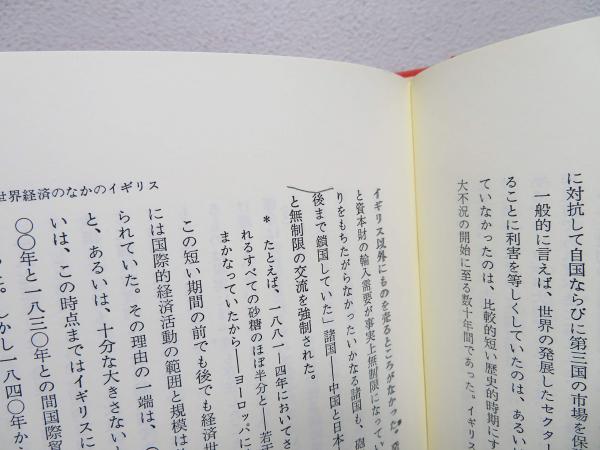 に対抗して自国ならびに第三国の市場を保
一般的に言えば、世界の発展したセクター
ることに利害を等しくしていたのは、あるい
ていなかったのは、比較的短い歴史的時期にす
大不況の開始に至る数十年間であった。イギリス
イギリス以外にものを売るところがなかった。
と資本財の輸入需要が事実上無制限になってい
りをもちたがらなかったいかなる諸国も、砲
後まで鎖国していた」諸国――中国と日本
と無制限の交流を強制された。
* たとえば、一八八一―四年においてさ
れるすべての砂糖のほぼ半分と――若干
まかなっていたから――ヨーロッパに
この短い期間の前でも後でも経済世
には国際的経済活動の範囲と規模は
られていた。その理由の一端は、
と、あるいは、十分な大きさないし
いは、この時点まではイギリスに
〇〇年と一八三〇年との間国際貿
った。しかし一八四〇年か
世界経済のなかのイギリス